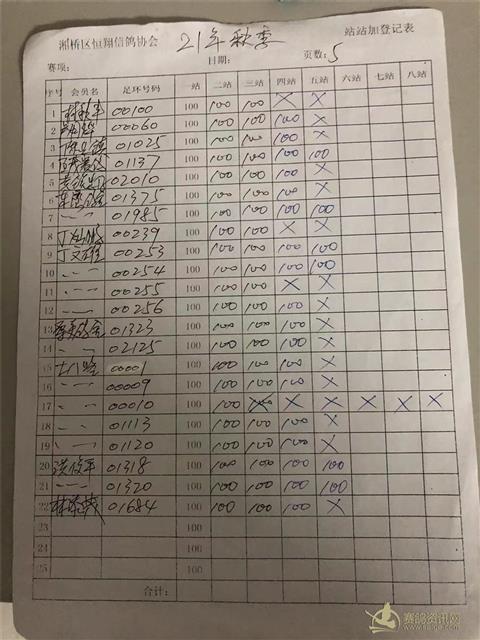 湘桥区恒翔信鸽协会 21年秋季 站站加登记表
赛项： 日期： 页数：5
序号 会员名 足环号码 一站 二站 三站 四站 五站 六站 七站 八站
1 00100 100 100 100 × ×
2 00060 100 100 100 100 ×
3 01025 100 100 100 100 ×
4 01137 100 100 100 100 100
5 02010 100 100 100 100 ×
6 01375 100 100 100 100 ×
7 〃 01985 100 100 100 100 100
8 00239 100 100 100 × ×
9 丁文雄 00253 100 100 100 100 100
10 〃 00254 100 100 100 100 100
11 〃 00255 100 100 100 × ×
12 〃 00256 100 100 100 100 ×
13 01323 100 100 100 100 ×
14 〃 02125 100 100 100 100 ×
15 00001 100 100 100 100 ×
16 〃 00009 100 100 100 100 ×
17 〃 00010 100 100 × × × × × ×
18 〃 01113 100 100 100 100 ×
19 〃 01120 100 100 100 100 ×
20 01318 100 100 100 100 100
21 〃 01320 100 100 100 100 100
22 01684 100 100 100 100 ×
23 100
24 100
25 100
合计：
赛鸽资讯网